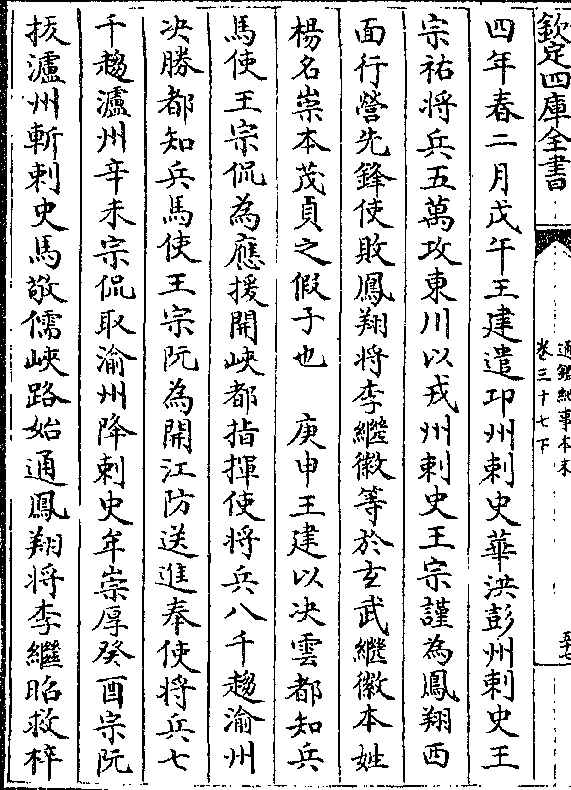 欽定四庫全書
通鑑紀事本末
卷三十七下
四年春二月戊午王建遣邛州刺史華洪彭州刺史王
宗祐将兵五萬攻東川以戎州刺史王宗謹為鳳翔西
面行營先鋒使敗鳳翔将李繼徽等於玄武繼徽本姓
楊名崇本茂貞之假子也 庚申王建以决雲都知兵
馬使王宗侃為應援開峽都指揮使将兵八千趨渝州
决勝都知兵馬使王宗阮為開江防送進奉使将兵七
千趨瀘州辛未宗侃取渝州降刺史牟崇厚癸酉宗阮
拔瀘州斬刺史馬敬儒峽路始通鳳翔将李繼昭救梓